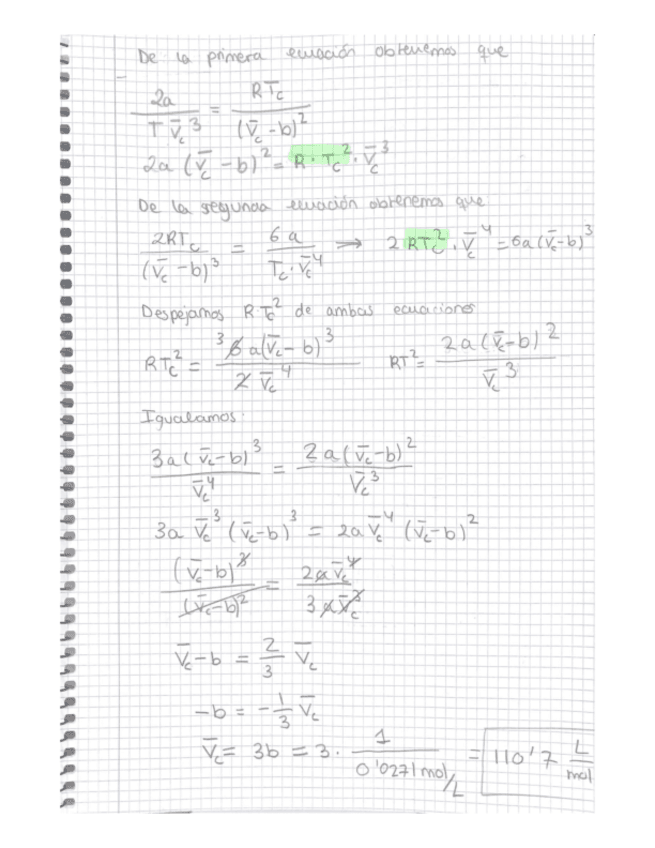 De la primera ecuación obtenemos que
2a / (T V̄c³) = RTc / (V̄c - b)²
2a (V̄c - b)² = R · Tc² · V̄c³
De la segunda ecuación obtenemos que
2RTc / (V̄c - b)³ = 6a / (Tc · V̄c⁴) → 2 RTc² · V̄c⁴ = 6a (V̄c - b)³
Despejamos R·Tc² de ambas ecuaciones
RTc² = 3 6 a(V̄c - b)³ / (2 V̄c⁴) RT² = 2a (V̄c - b)² / V̄c³
Igualamos:
3a (V̄c - b)³ / V̄c⁴ = 2a (V̄c - b)² / V̄c³
3a V̄c³ (V̄c - b)³ = 2a V̄c⁴ (V̄c - b)²
(V̄c - b)³ / (V̄c - b)² = 2a V̄c⁴ / (3 a V̄c³)
V̄c - b = 2/3 V̄c
-b = -1/3 V̄c
V̄c = 3b = 3 · 1 / (0'0271 mol/L) = 110'7 L/mol